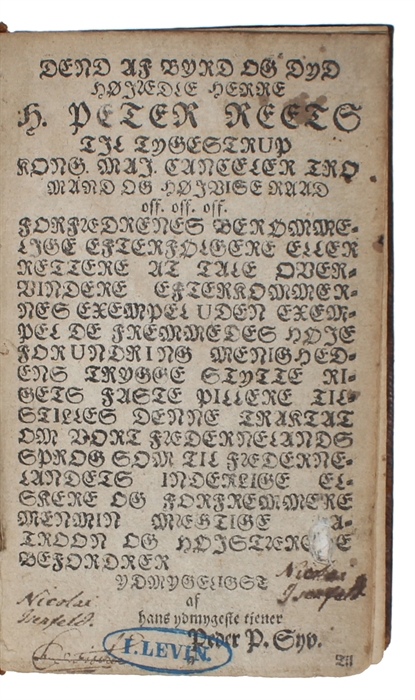 DEND AF BYRD OG DYD
HØJÆDLE HERRE
H. PETER REETS
TIL TYGESTRUP
KONG. MAJ. CANCELER TRO
MAND OG HØJVISE RAAD
off. off. off.
FORFÆDRENES BERØMME-
LIGE EFTERFØLGERE ELLER
RETTERE AT TALE OVER-
VINDERE EFTERKOMMER-
NES EXEMPEL UDEN EXEM-
PEL DE FREMMEDES HØJE
FORUNDRING MENIGHED-
ENS TRYGGE STYTTE RI-
GETS FASTE PILLERE TIL-
STILLES DENNE TRAKTAT
OM VORT FÆDERNELANDS
SPROG SOM TIL FÆDERNE-
LANDETS INDERLIGE EL-
SKERE OG FORFREMMERE
MENMIN MEGTIGE A-
TROON OG
BEFORDRER
YDMYGELIGST
af
hans ydmygeste tiener
Peder P. Syv.
Nicolai
Isenfeldt.
Nicolai
Isenfeldt.
I. LEVIN.
Til